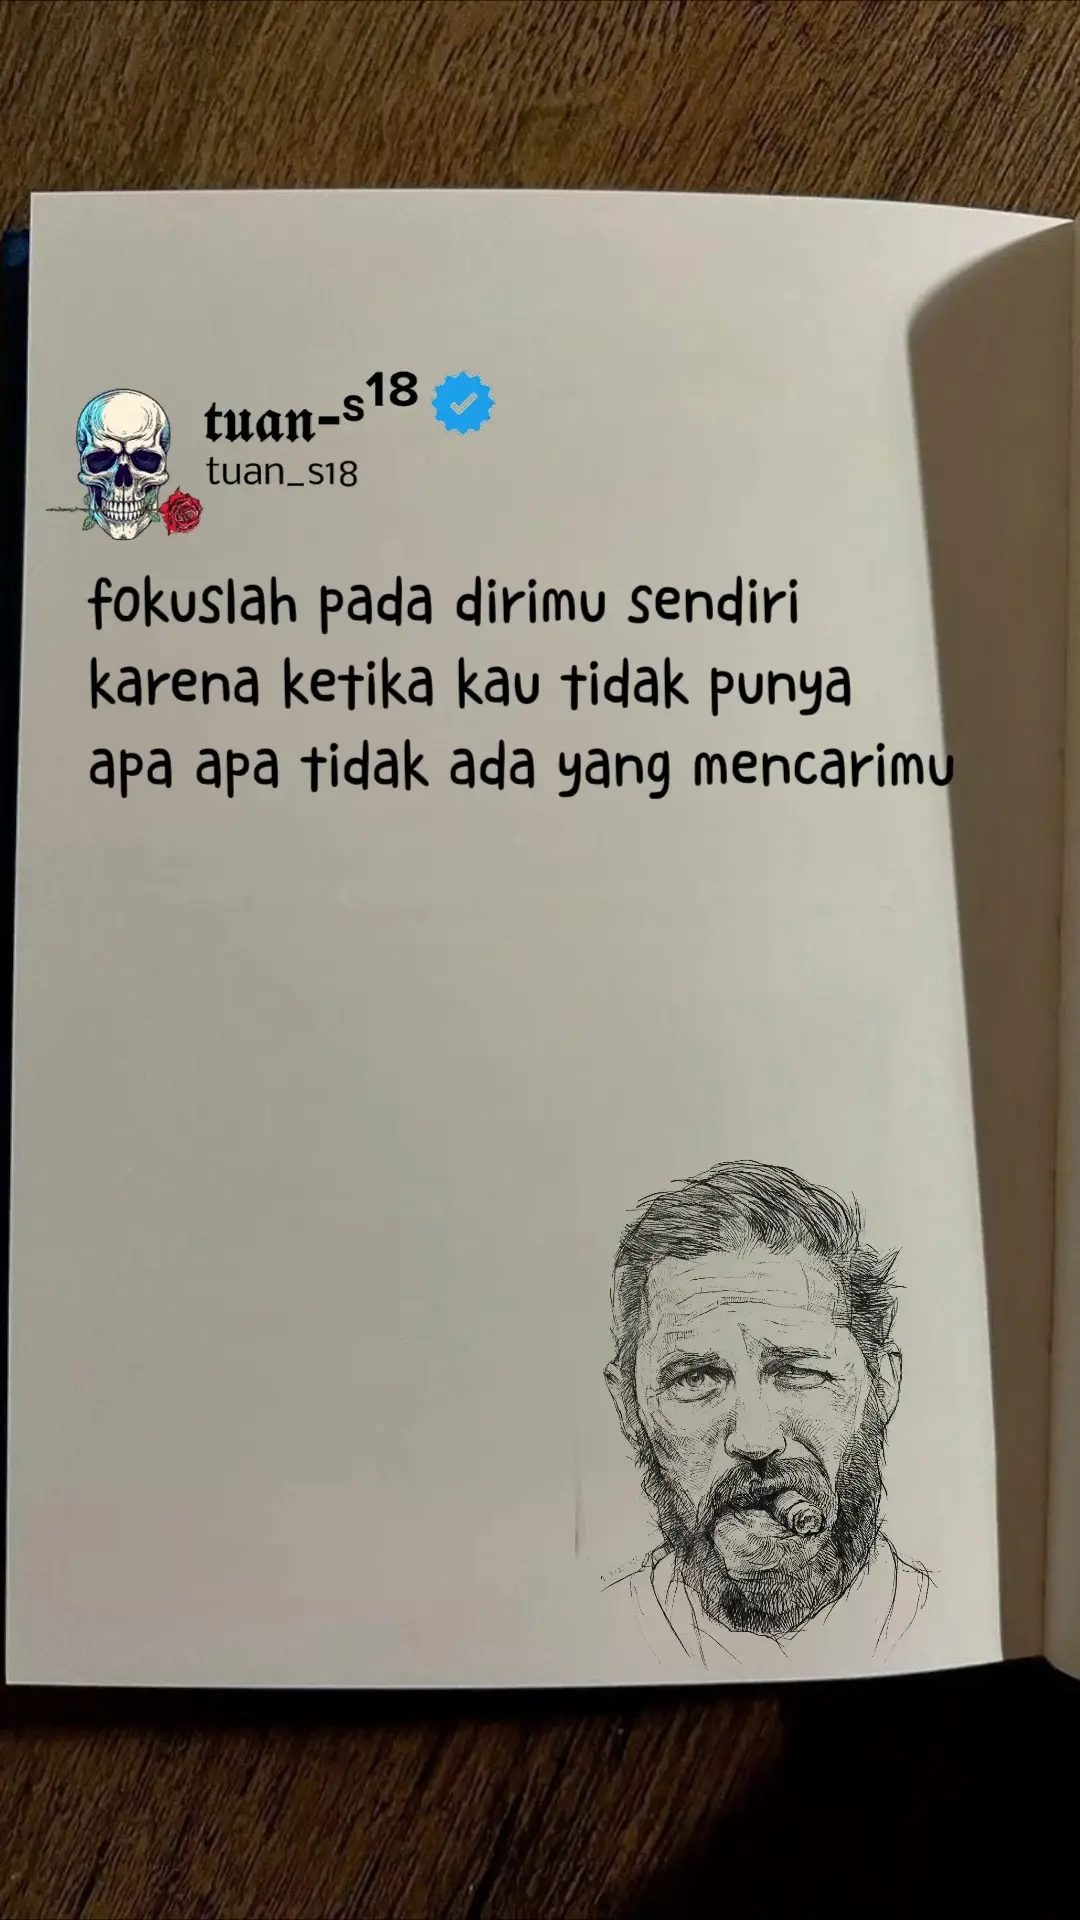 tuan-s18
tuan_s18
fokuslah pada dirimu sendiri
karena ketika kau tidak punya
apa apa tidak ada yang mencarimu